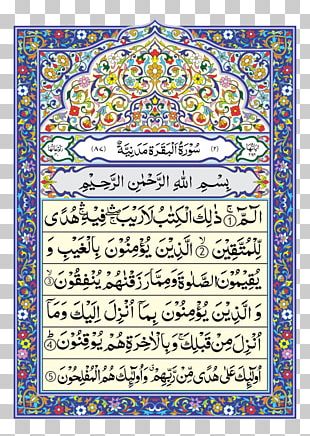 (٢) سُوْرَةُ الْبَقَرَةِ مَدَنِيَّةٌ (٨٧)
بِسْمِ اللهِ الرَّحْمٰنِ الرَّحِيْمِ
الٓمّٓ ۚ ① ذٰلِكَ الْكِتٰبُ لَا رَيْبَ ۛۚ فِيْهِ ۛۚ هُدًى
لِّلْمُتَّقِيْنَ ② الَّذِيْنَ يُؤْمِنُوْنَ بِالْغَيْبِ وَ
يُقِيْمُوْنَ الصَّلٰوةَ وَمِمَّا رَزَقْنٰهُمْ يُنْفِقُوْنَ ③
وَ الَّذِيْنَ يُؤْمِنُوْنَ بِمَآ اُنْزِلَ اِلَيْكَ وَمَآ
اُنْزِلَ مِنْ قَبْلِكَ وَبِالْاٰخِرَةِ هُمْ يُوْقِنُوْنَ ④
اُولٰٓئِكَ عَلٰى هُدًى مِّنْ رَّبِّهِمْ ۙ وَاُولٰٓئِكَ هُمُ الْمُفْلِحُوْنَ ⑤